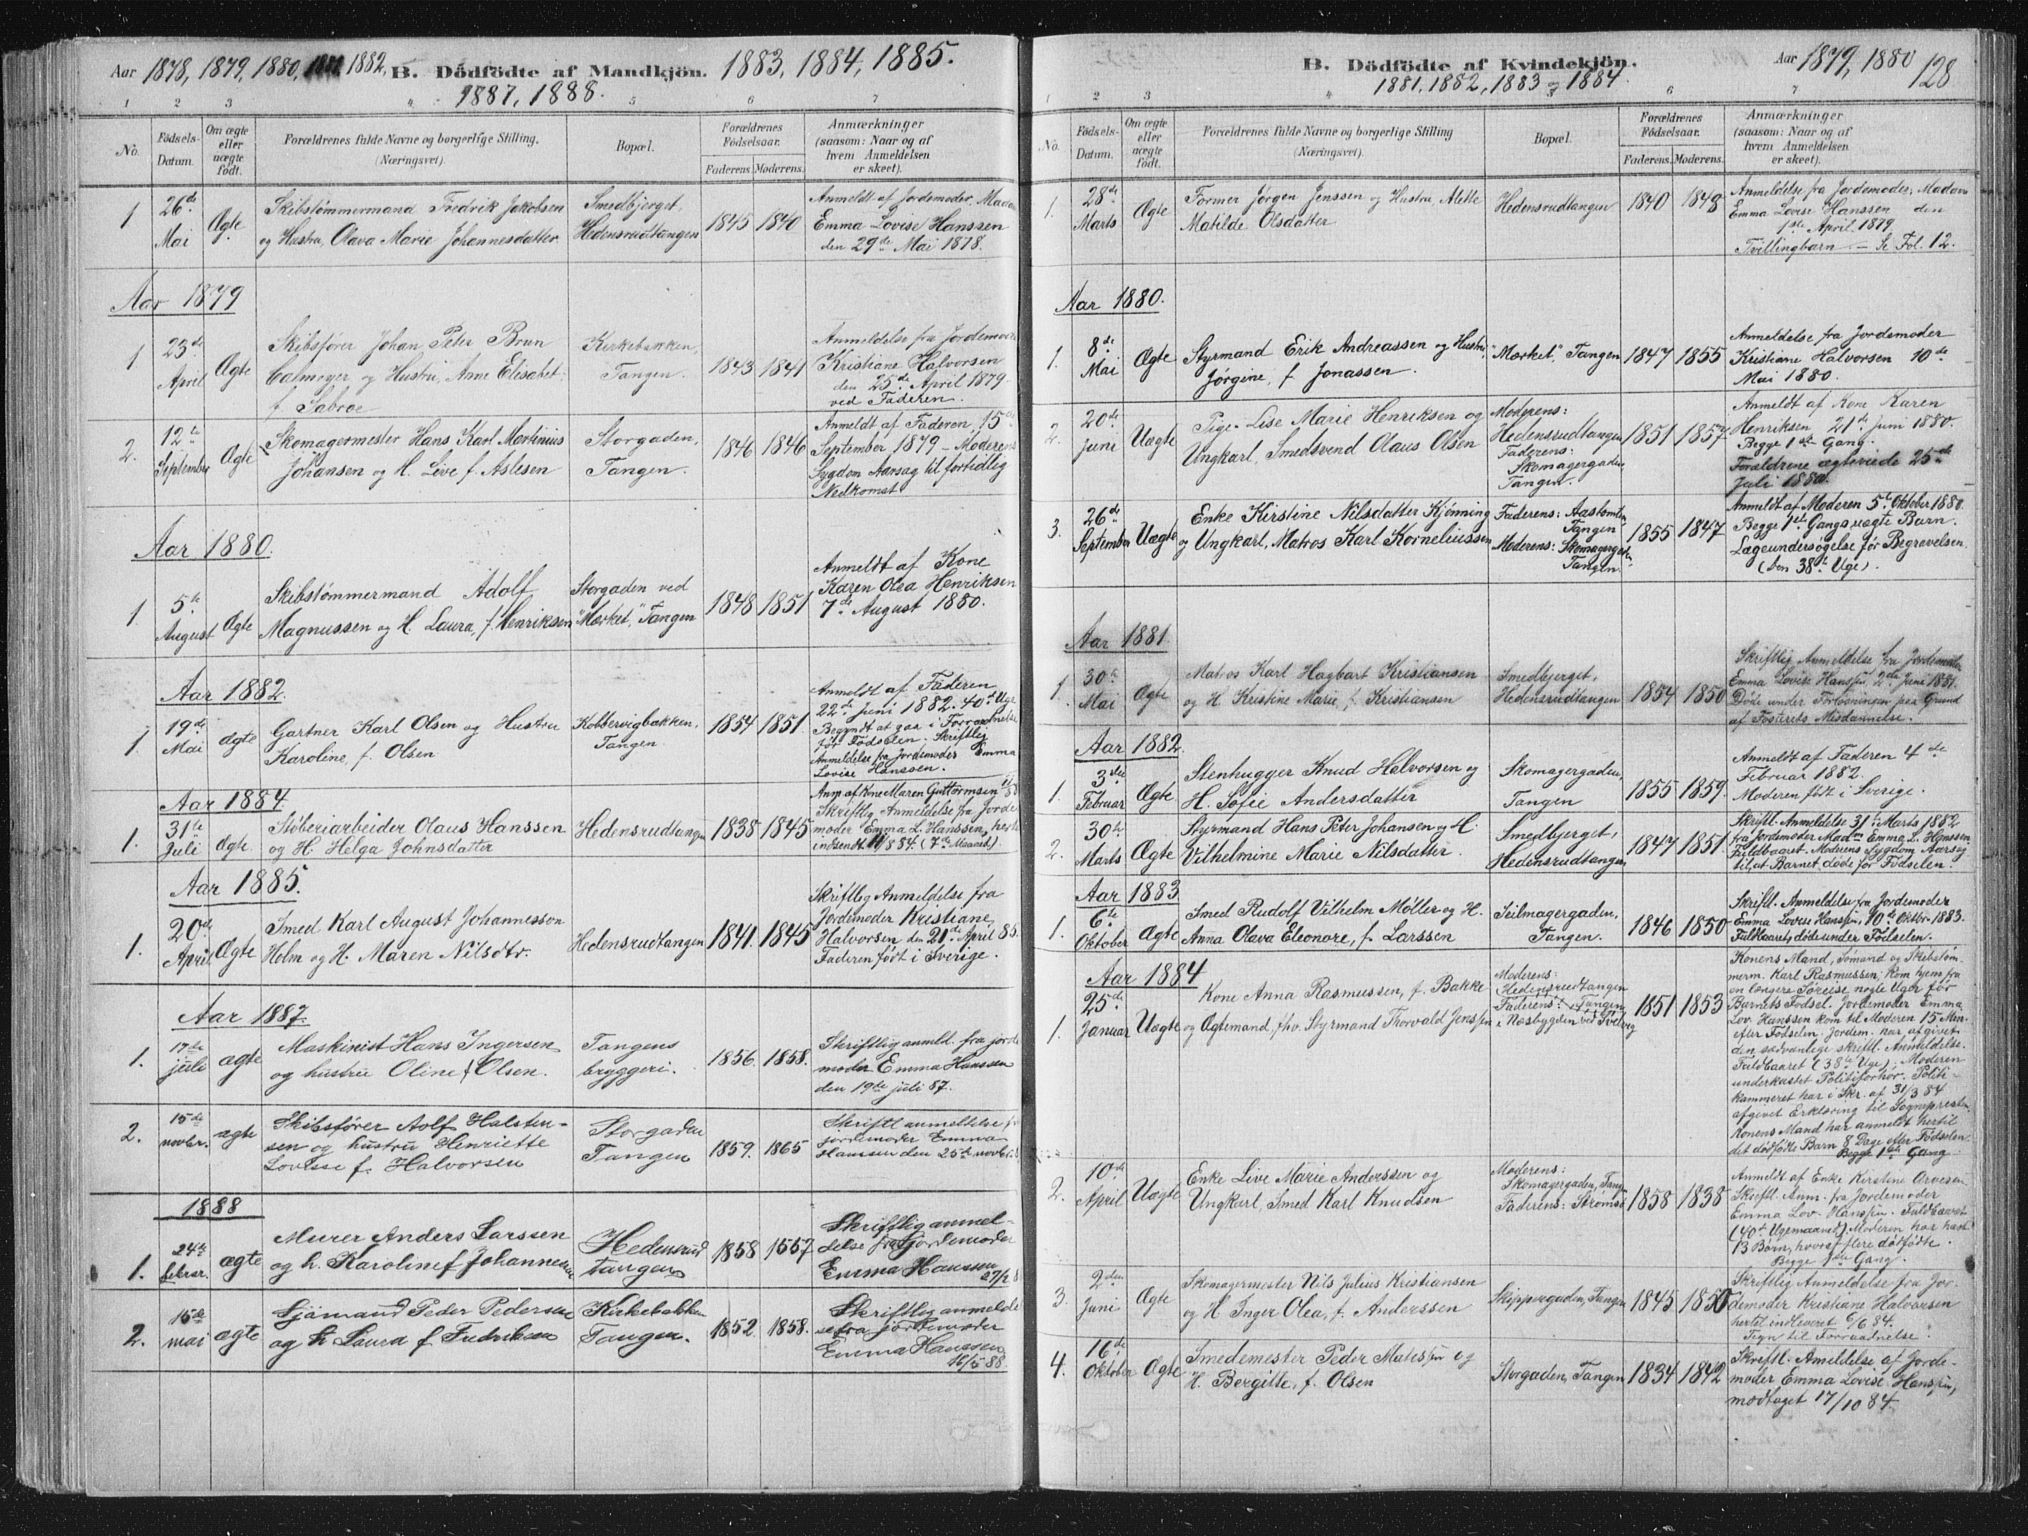 Aar 1878, 1879, 1880, 1882, B. Dödfödte af Mandkjön. 1883, 1884, 1885.
1887, 1888.
1 2 3 4 5 6 7
No. Fødsels-Datum. Om ægte eller uægte født. Forældrenes fulde Navne og borgerlige Stilling. (Næringsvei). Bopæl. Forældrenes Fødselsaar. Faderens. Moderens. Anmærkninger (saasom: Naar og af hvem Anmeldelsen er skeet).
1 26de Mai Ægte Skibstømmermand Fredrik Jakobsen
og Hustru Olava Marie Johannesdatter
Smedbjerget,
Hedensrudtangen
1845 1840
Anmeldt af Jordemoder, Madam
Emma Lovise Hanssen
den 29de Mai 1878.
Aar 1879
1 23de April Ægte Skibsfører Johan Peter Brun
Calmeyer og Hustru, Anne Elisabet
f. Sabroe
Kirkebakken,
Tangen.
1843 1841
Anmeldelse fra Jordemoder
Kristiane Halvorsen
den 25de April 1879
ved Faderen.
2. 12te September Ægte Skomagermester Hans Karl Martinius
Johansen og H. Live f. Aslesen
Storgaden,
Tangen.
1846 1846
Anmeldt af Faderen 15de
September 1879 – Moderens
Sygdom Aarsag til fortidlig
Nedkomst
Aar 1880.
1 5te August Ægte Skibstømmermand Adolf
Magnussen og H. Laura, f. Henriksen
Storgaden ved
"Mærket," Tangen
1848 1851
Anmeldt af Kone
Karen Olea Henriksen
7de August 1880.
Aar 1882.
1. 19de Mai ægte Gartner Karl Olsen og Hustru
Karoline, f. Olsen
Kobbervigbakken,
Tangen
1854 1851
Anmeldt af Faderen
22de juni 1882. 40de Uge
Begyndt at gaa i Forraadnelse
før Fødselen. Skriftlig
Anmeldelse fra Jordemoder Emma
Lovise Hanssen.
Aar 1884.
1. 31te Juli Ægte Støberiarbeider Olaus Hanssen
og H. Helga Johnsdatter
Hedensrudtangen
1838 1845
Anm. af Kone Maren Guttormsen
Skriftlig Anmeldelse fra Jorde-
moder Emma L. Hanssen,
indsendt 84. (7de Maaned.)
Aar 1885.
1. 20de April Ægte Smed Karl August Johannesson
Holm og H. Maren Nilsdtr.
Hedensrudtangen
1841. 1845
Skriftlig Anmeldelse fra
Jordemoder Kristiane
Halvorsen den 21de April 85.
Faderen født i Sverige.
Aar 1887.
1. 17de juli ægte Maskinist Hans Ingersen
og hustru Oline f Olsen.
Tangens
bryggeri.
1856. 1858.
Skriftlig anmelt. fra jorde
moder Emma Hanssen
den 19de juli 87.
2. 15de novbr. ægte Skibsfører Adolf Halsten-
sen og hustru Henriette
Lovisse f. Halvorsen
Storgaden
Tangen
1859. 1865
Skriftl anmeldelse fra
jordemoder Emma
Hanssen den 25de novbr.
1888
1. 24de febrar. ægte Murer Anders Larssen
og h. Karoline f Johannesen
Hedensrud
tangen
1858 1557
Skriftlig anmel-
delse fra jordemoder
Emma Hanssen
27/2 8
2. 15de mai ægte Sjömand Peder Pedersen
og h. Laura f Fredriksen
Kirkebakken
Tangen.
1852. 1858.
Skriftlig anmelde
se fra jordemoder
Emma Hanssen
16/5 88.
B. Dödfödte af Kvindekjön. Aar 1879, 1880 128
1881, 1882, 1883 og 1884.
1 2 3 4 5 6 7
No. Fødsels-Datum. Om ægte eller uægte født. Forældrenes fulde Navne og borgerlige Stilling (Næringsvei). Bopæl. Forældrenes Fødselsaar. Faderens. Moderens. Anmærkninger (saasom: Naar og af hvem Anmeldelsen er skeet).
1. 28de Marts Ægte Former Jørgen Jenssen og Hustru Alette
Matilde Olsdatter
Hedensrudtangen
1840 1848
Anmeldelse fra Jordemoder, Madam
Emma Lovise Hanssen den
1ste April 1879
Tvillingbarn – Se Fol. 12.
Aar 1880.
1. 8de Mai Ægte Styrmand Erik Andreassen og Hustru
Jørgine, f. Jonassen.
"Mærket" Tangen
1847 1855
Anmeldelse fra Jordemoder
Kristiane Halvorsen 10de
Mai 1880.
2. 20de Juni Uægte Pige Lise Marie Henriksen og
Ungkarl, Smedsvend Olaus Olsen
Moderens:
Hedensrudtangen
Faderens:
Skomagergaden
Tangen.
1851 1857
Anmeldt af Kone Karen
Henriksen 21de juni 1880.
Begge 1ste Gang.
Forældrene ægteviede 25de
Juli 1880.
3. 26de September Uægte Enke Kirstine Nilsdatter Kjønning
og Ungkarl, Matros Karl Korneliussen
Faderens: Aastomten
Tangen
Moderens: Skomagergaden
Tangen
1855 1847
Anmeldt af Moderen 5te Oktober 1880.
Begge 1ste Gangs uægte Barn.
Lægeundersøgelse før Begravelsen.
(Den 38te Uge).
Aar 1881.
1 30te Mai Ægte Matros Karl Hagbart Kristiansen
og H Kristine Marie, f. Kristiansen
Smedbjerget,
Hedensrudtangen
1854 1850
Skriftlig Anmeldelse fra Jordemoder
Emma Lovise Hanssen, 2de Juni 1881.
Døde under Forløsningen paa Grund
af Fosterets Misdannelse.
Aar 1882.
1. 3die Februar Ægte Stenhugger Knud Halvorsen og
H. Sofie Andersdatter
Skomagergaden,
Tangen
1855 1859.
Anmeldt af Faderen 4de
Februar 1882.
Moderen født i Sverige.
2. 30te Marts Ægte Styrmand Hans Peter Johansen og H
Vilhelmine Marie Nilsdatter.
Smedbjerget,
Hedensrudtangen
1847 1851
Skriftl. Anmeldelse 31te Marts 1882
fra Jordemoder Madm Emma L. Hanssen
Fuldbaaret. Moderens Sygdom Aarsag
til, at Barnet døde før Fødselen.
Aar 1883
1. 6te Oktober Ægte Smed Rudolf Vilhelm Möller og H.
Anna Olava Eleonore, f. Larssen
Seilmagergaden,
Tangen.
1846 1850
Skriftl. Anmeldelse fra Jordemoder
Emma Lovise Hanssen, 10de Oktbr. 1883.
Fuldbaaret, døde under Fødselen.
Aar 1884
1. 25de Januar Uægte Kone Anna Rasmussen, f. Bakke
og Ægtemand, fhv. Styrmand Thorvald Jenssen
Moderens:
Hedensrudtangen
Faderens: Tangen
i Næsbygden ved Svelvig
1851 1853
Konens Mand, Sømand og Skibstøm-
merm. Karl Rasmussen, kom hjem fra
en længere Søreise nogle Uger før
Barnets Fødsel. Jordemoder Emma
Lov. Hanssen kom til Moderen 15 Min.
efter Fødselen. Jordem. har afgivet
den sædvanlige skriftl. Anmeldelse.
Fuldbaaret (38te Uge). Moderen
underkastet Politiforhør. Politi-
kammeret har i Skr. af 31/3 84
afgivet Erklæring til Sognepresten
Konens Mand har anmeldt hertil
det dødfødte Barn 8 Dage efter Fødselen.
Begge 1ste Gang.
2. 10de April Uægte Enke Live Marie Anderssen og
Ungkarl, Smed Karl Knudsen
Moderens:
Skomagergaden, Tangen
Faderens: Strømsø
1858 1838
Anmeldt af Enke Kirstine Arvesen
Skriftl. Anm. fra Jordemoder
Emma Lov. Hanssen. Fuldbaaret
(40de Uge). Moderen har havt
13 Børn, hvoraf flere dødfødte.
Begge 1ste Gang.
3. 2den Juni Ægte Skomagermester Nils Julius Kristiansen
og H. Inger Olea, f. Anderssen
Skippergaden, Tangen
1845 1850
Skriftlig Anmeldelse fra Jor-
demoder Kristiane Halvorsen
hertil indleveret 6/6 84.
Tegn til Forraadnelse.
4. 16de Oktober Ægte Smedemester Peder Mathissen og
H. Bergitte, f. Olsen
Storgaden, Tangen
1834 1842
Skriftl. Anmeldelse af Jorde-
moder Emma Lovise Hanssen,
modtaget 17/10 84.